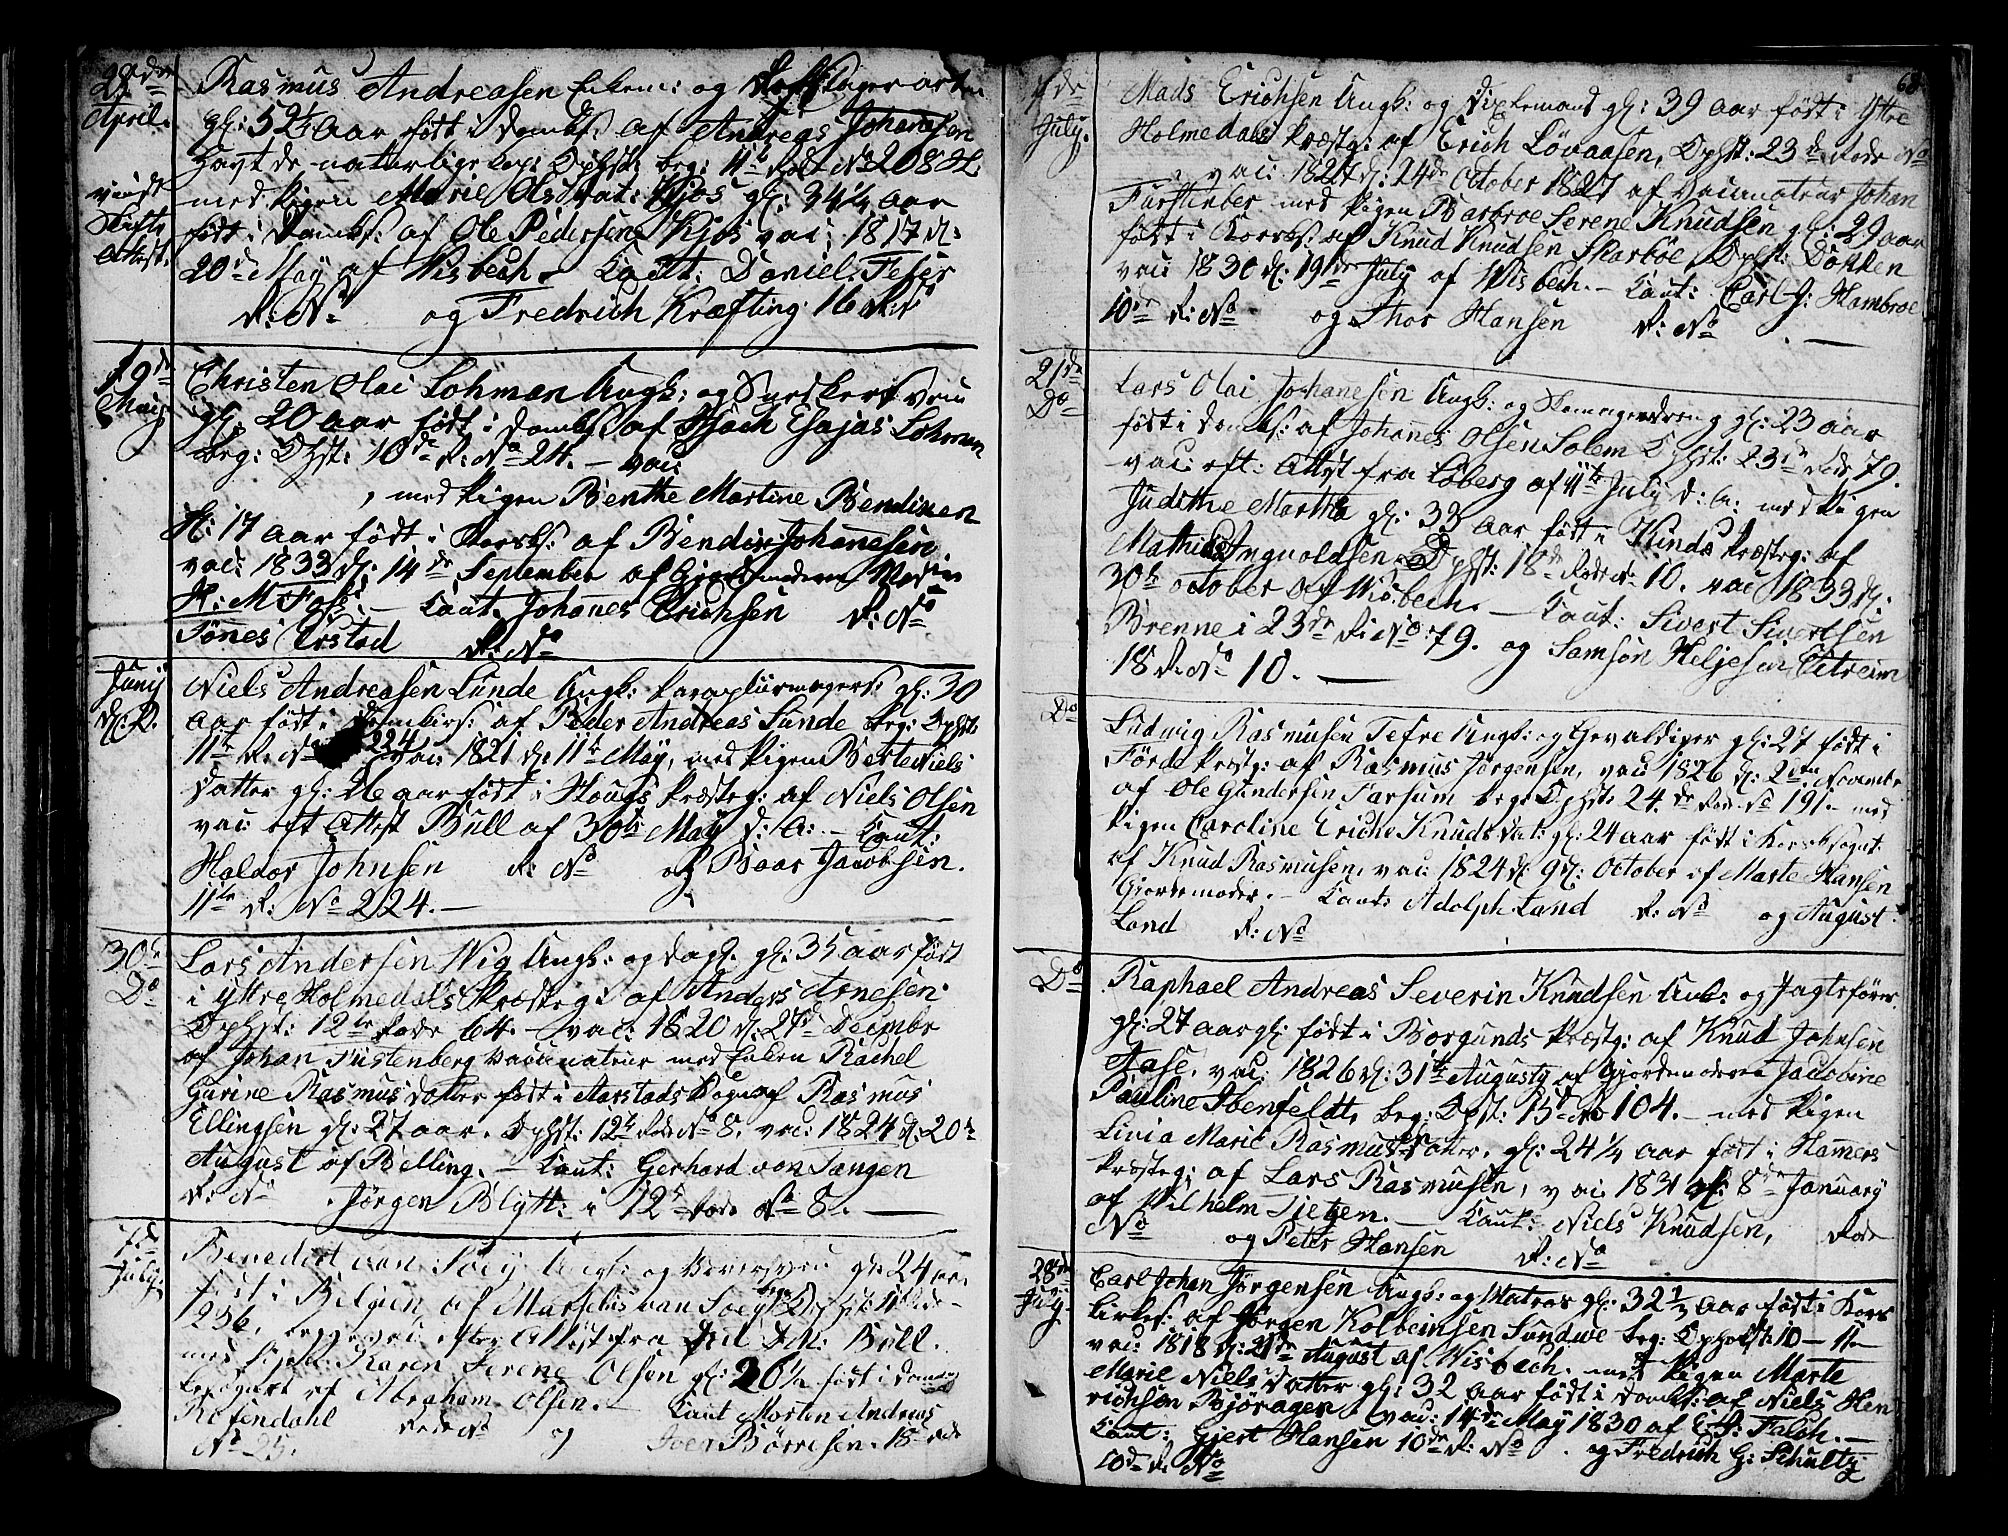 28de
April.
Rasmus Andreasen Enkem: og
gl: 52½ Aar født i Domks: af Andreas Johanesen
Opholdst: beg: 11te Rode No 208
med Pigen Marie Olsdat: Kjos gl: 34¼ aar
født i Domks: af Ole Pedersen Kjos vac: 1817 d:
20de May af Wisbech. Caut: Daniel Feser
R: No og Fredrich Kræfting 16 R: No
19de
May
Christen Olai Lohman Ungk: og
gl: 20 aar født i Domks af Esajas Lohman
beg: Ophst: 10de R: No 24. — vac:
, med Pigen Benthe Martine Bendixen
gl: 17 aar født i Korsks: af Bendix Johanesen
vac: 1833 d: 14de September af Gjordemoderen Mad
H: M Foss. — Caut. Johanes Erichsen R: No
Tönes Erstad R: No
Junij
d: 2.
Niels Andreasen Lunde Ungk: Paraplurmagers: gl: 30
aar født i Domkirs: af Peder Andreas Lunde beg: Ophst:
11te R: No 224 vac: 1821 d: 11te May, med Pigen Berte Niels
Datter gl: 26 aar født i Hougs Præsteg: af Niels Olsen
vac: eft Attest Bull af 30te May d: A: — Caut:
Haldor Johnsen R: No og Baar Jacobsen.
11te R: No 224. —
30te
Do
Lars Andersen Wig Ungk: og dagk. gl: 35 aar født
i Yttre Holmedals Præsteg: af Anders Arnesen
Ophst: 12te Rode 64. — vac: 1820 d: 27de Decembr
af Johan Füstenberg Vaccinateur med Enken Rachel
Gurine Rasmusdatter født i Aarstads Sogn af Rasmus
Ellingsen gl: 27 aar. Ophst: 12te Rode No 8. vac: 1824 d: 20de
August af Belling. — Caut: Gerhard von Tangen
R: No . Jørgen Blytt: i 12te Rode No 8. —
7de
July.
Benedict van Soey Ungk: og gl: 24 aar
født i Belgien af Marselius van Soey Ophst: 11te Rode
236, efter Attest fra Bull.
med Karen Serene Olsen gl: 26½ født i Dom
kesognet af Abraham Olsen. — Caut Morten Andreas
Rosendahl Rode No og Iver Børresen. 18de Rode
No 25.
7de
July.
68
Mads Erichsen Ungk: og gl: 39 aar født i Yttre
Holmedals Præsteg: af Erich Løvaasen, Ophst: 23de Rode No
vac: 1827 d: 24de October 1827 af Vaccinateur Johan
Furstenber med Pigen Barbroe Serene Knudsen gl: 29 aar
født i Korsks: af Knud Knudsen Skarbøe, Ophst: Dokken
vac 1830 d: 19de July af Wisbech. — Caut: Carl J: Hambroe
10de R: No og Thor Hansen R: No . —
21de
Do
Lars Olai Johanesen Ungk: og Skomagerdreng gl: 23 aar
født i Domks: af Johanes Olsen Solem Ophst: 23de Rode 79.
vac: eft: Attest fra Løberg af 11te July d: A: med Pigen
Judithe Martha gl: 33 aar født i Kinds Præsteg: af
Mathias Ingvoldsen. Ophst: 18de Rode No 10. vac 1833 d:
30te October af Wisbech. — Caut: Sivert Sivertsen
Brenne i 23de R: No 79. og Samson Heljesen Eitreim
18 R: No 10. —
Do
Ludwig Rasmusen Tefre Ungk: og Gevaldiger gl: 27 født i
Førde Præstg: af Rasmus Jørgensen, vac 1826 d: 2den Novembr
af Ole Gundersen Farsum beg: Ophst: 24de Rode No 191. — med
Pigen Caroline Eriche Knudsdat: gl: 24 aar født i Korsksognt
af Knud Rasmusen, vac: 1824 d: 9d: October af Marte Hansen
Gjordemoder. — Caut: Adolph Land R: No og August
Land R: No
Do
Raphael Andreas Severin Knudsen Ungk: og Jagtefører
gl: 27 aar gl: født i Borgunds Præstg: af Knud Johnsen
Aase. vac: 1826 d: 31te Augusty af Gjordemoderen Jacobine
Pauline Ibenfeldt, beg: Ophst: 15de No 104. — med Pigen
Livia Marie Rasmusdater, gl: 24¼ aar født i Hamers
Præsteg: af Lars Rasmusen, vac. 1831 d: 8de January
af Wilhelm Tietzen. — Caut: Niels Knudsen, Rode
No og Peter Hansen R: No
28de
July.
Carl Johan Jørgensen Ungk: og Matros gl: 32½ aar født i Kors
Kirkes: af Jørgen Kolbeinsen Sundwe beg: Opholst: 10 — 11te
vac: 1818 d: 21de August af Wisbech. med Pigen Marte
Marie Nielsdatter gl: 32 aar født i Domks: af Niels Hen
richsen Bjøragen, vac: 14de May 1830 af E: S: Falch. —
Caut: Gjert Hansen 10de R: No . og Fredrich G: Schultz
10de R: No